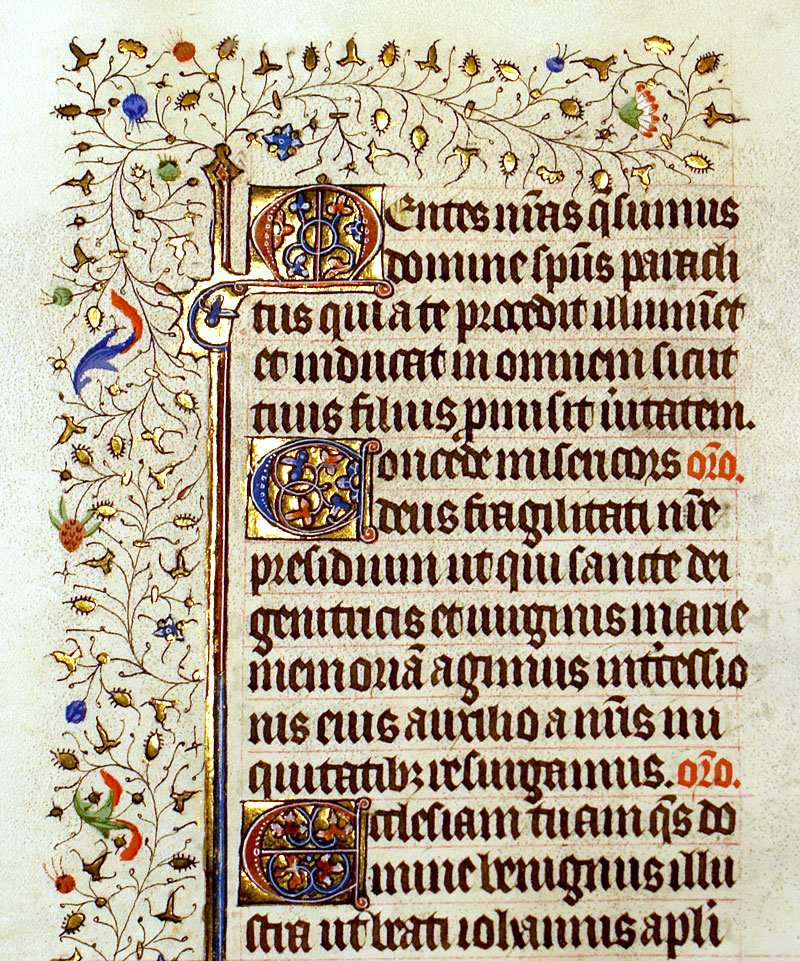 Mentes nr̃as q̃sumus
domine sp̃us paracli
tus qui a te procedit illumĩet
et inducat in omnem sicut
tuus filius ꝓmisit ũitatem.
Concede misericors or̃o.
deus fragilitati nr̃e
presidium ut qui sancte dei
genitricis et uirginis marie
memoriã agimus int̃cessio
nis eius auxilio a nr̃is ini
quitatibꝫ resurgamus. or̃o.
Ecclesiam tuam q̃s do
mine benignus illu
stra ut beati iohannis apl̃i